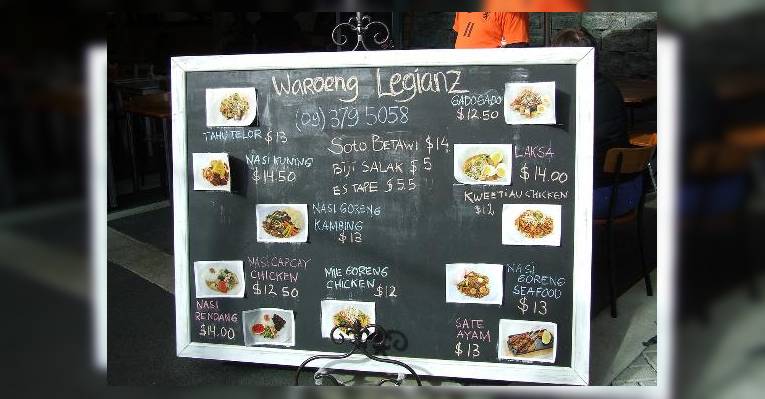 Waroeng Legianz
(09) 379 5058
TAHU TELOR $13
GADOGADO
$12.50
SOTO BETAWI $14
BIJI SALAK $5
ES TAPE $5.5
NASI KUNING
$14.50
LAKSA
$14.00
KWEETIAU CHICKEN
$12
NASI GORENG
KAMBING
$13
NASI CAPCAY
CHICKEN
$12 50
MIE GORENG
CHICKEN $12
NASI
GORENG
SEAFOOD
$13
NASI
RENDANG
$14.00
SATE
AYAM
$13